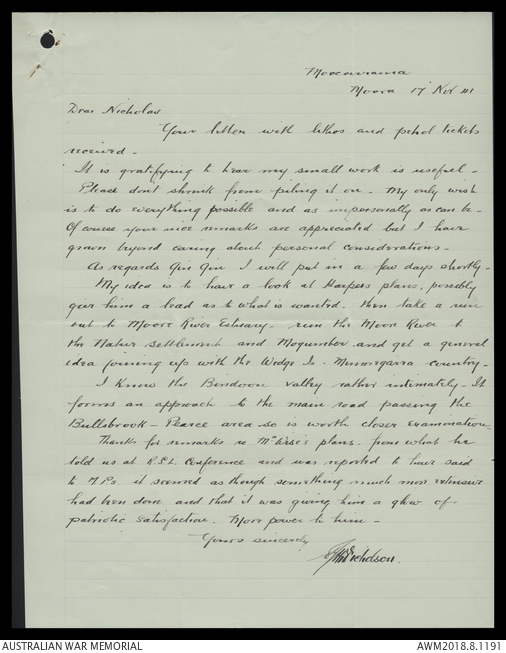 Moora 17 Nov 41
Dear Nicholas
Your letter with lithos and petrol tickets
received -
It is gratifying to hear my small work is useful -
Please dont shrink from piling it on - My only wish
is to do everything possible and as impersonally as can be -
Of course your nice remarks are appreciated but I have
grown beyond caring about personal considerations -
As regards Gin Gin I will put in a few days shortly -
My idea is to have a look at Harpers plans, possibly
give him a lead as to what is wanted. then take a run
out to Moore River Estuary - run the Moore River to
the Native Settlement and Mogumber and get a general
idea joining up with the Wedge Is - country -
I know the Bindoon valley rather intimately - It
forms an approach to the main road passing the
Bullsbrook - Pearce area so is worth closer examination
Thanks for remarks re plans - from what he
told us at R.S.L. Conference and was reported to have said
to M.Ps. it seemed as though something much more extensive
had been done and that it was giving him a glow of
patriotic satisfaction. More power to him -
Yours sincerely
Nicholson.
AUSTRALIAN WAR MEMORIAL
AWM2018.8.1191